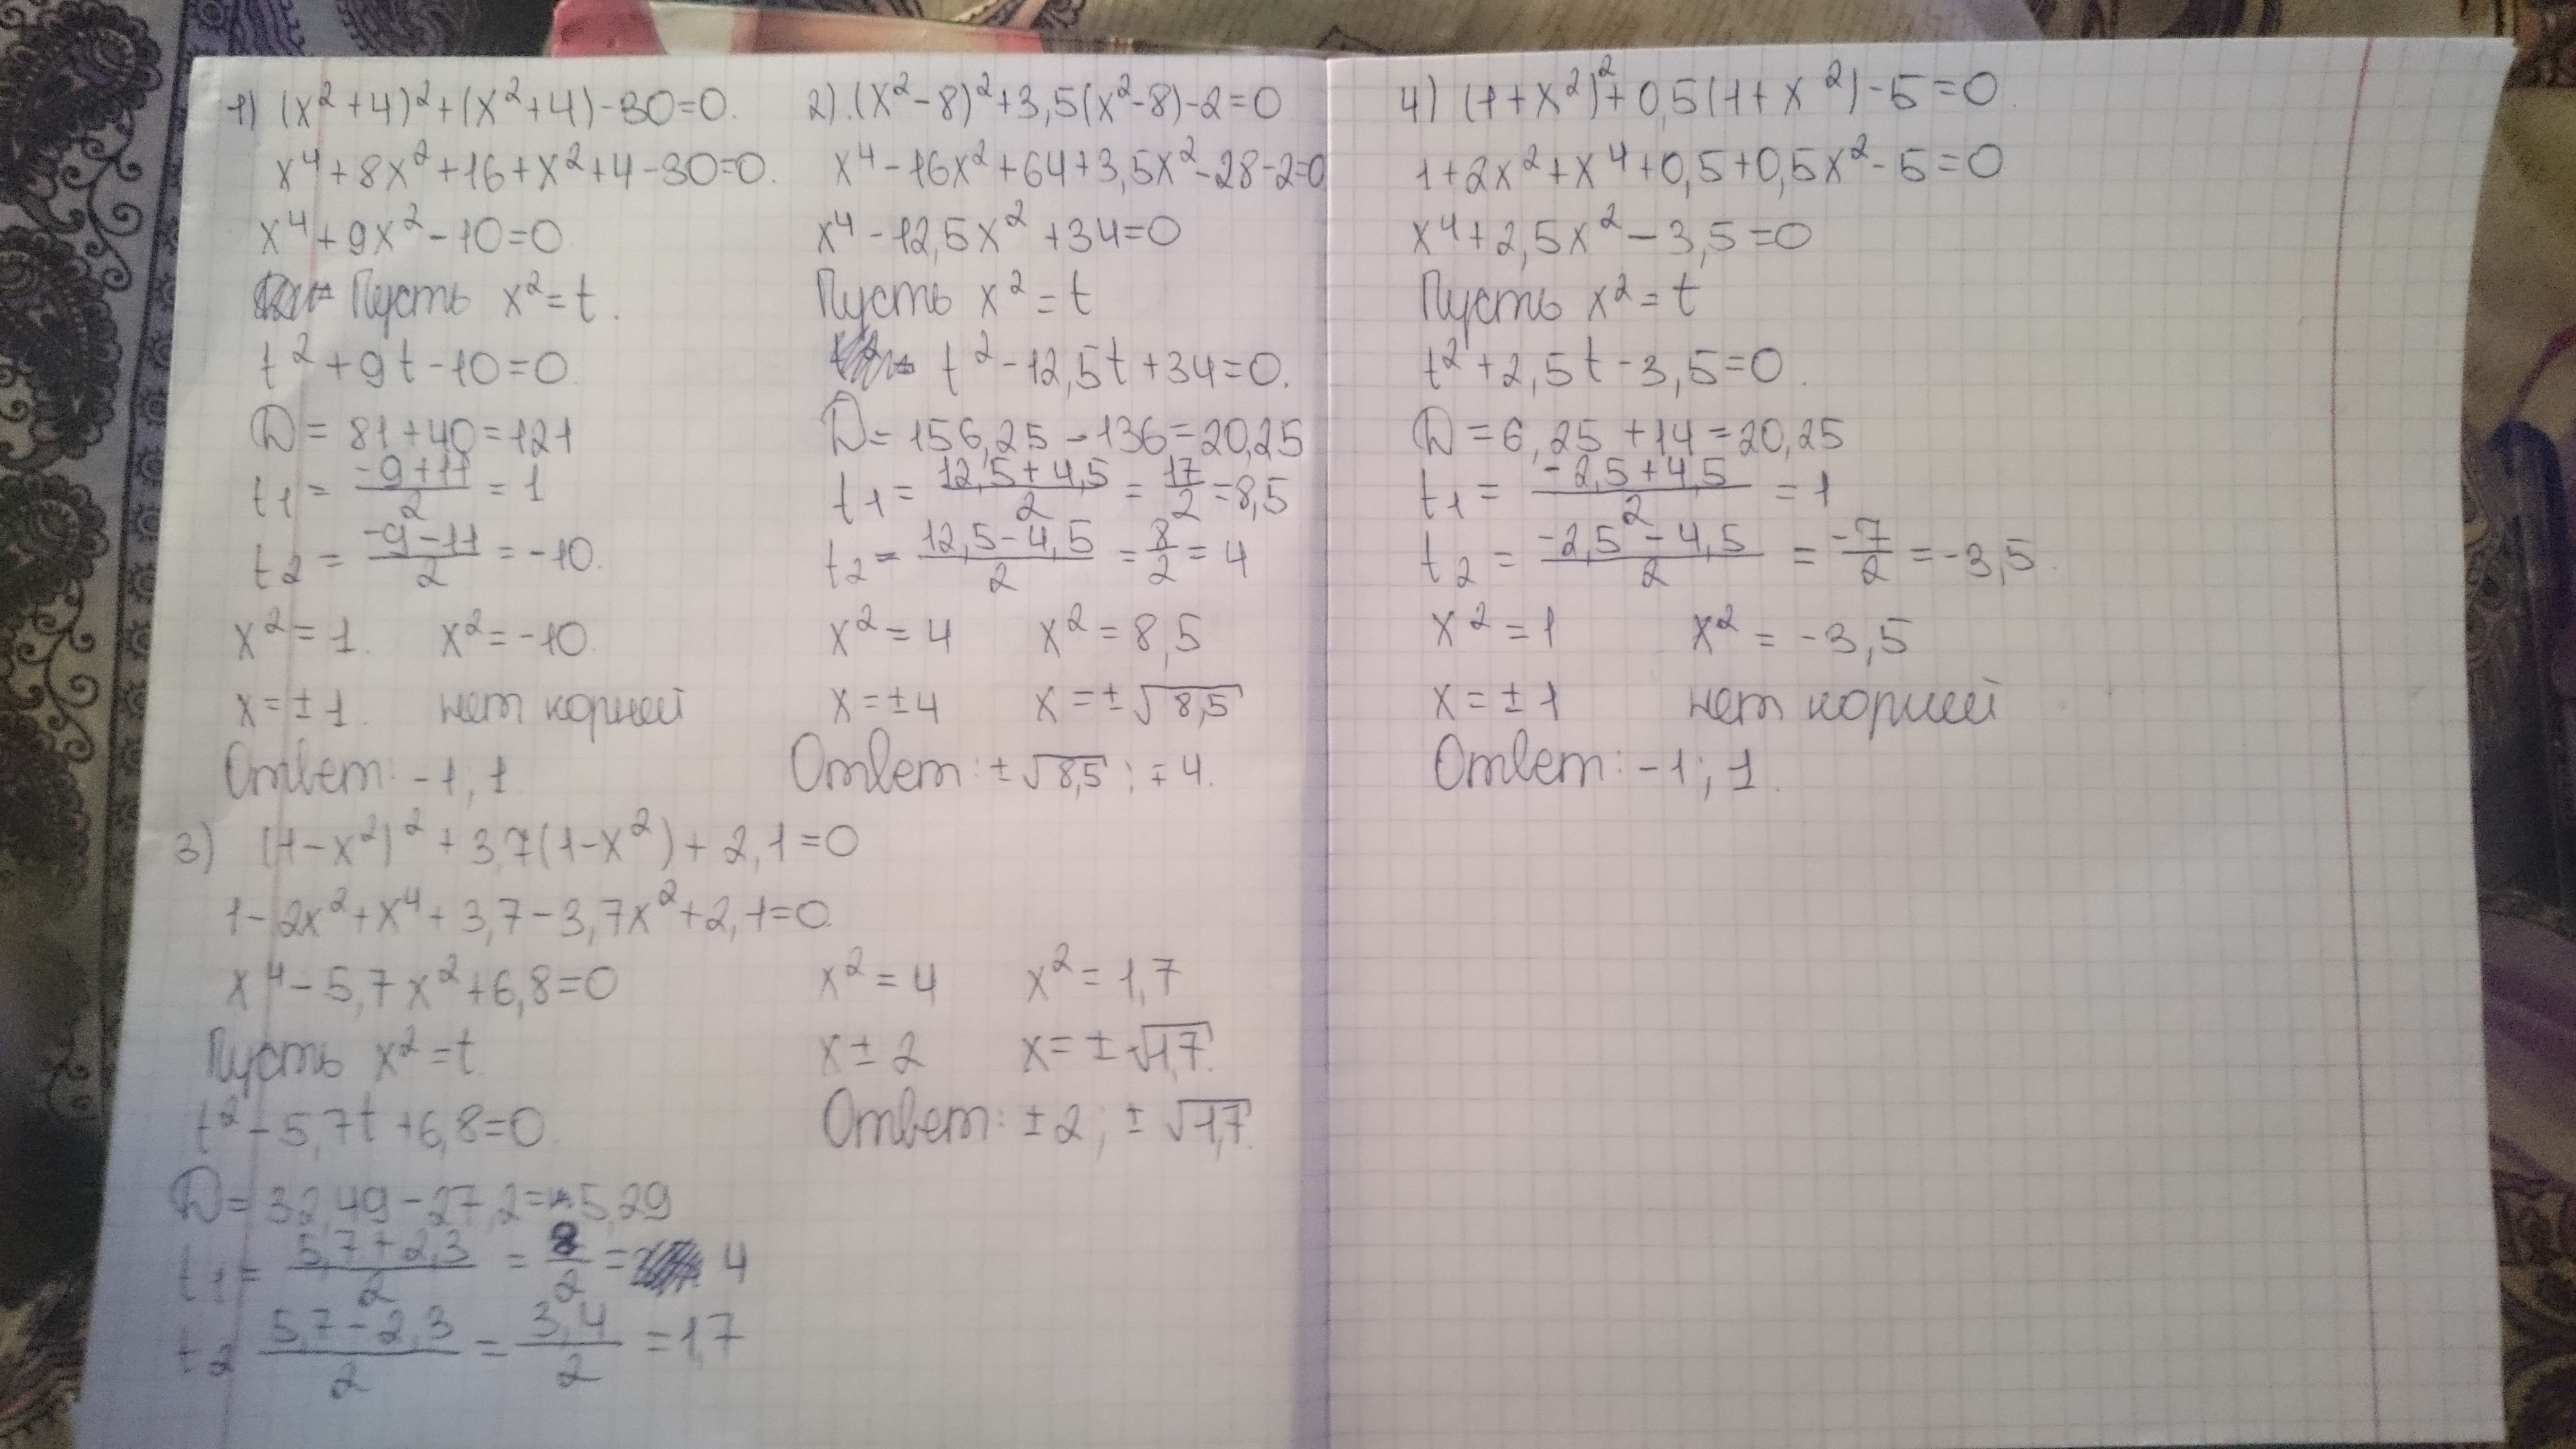 1) (x²+4)²+(x²+4)-30=0.
x⁴+8x²+16+x²+4-30=0.
x⁴+9x²-10=0
Пусть x²=t.
t²+9t-10=0
D=81+40=121
t₁=(-9+11)/2=1
t₂=(-9-11)/2=-10.
x²=1. x²=-10.
x=±1. нет корней
Ответ: -1; 1
2).(x²-8)²+3,5(x²-8)-2=0
x⁴-16x²+64+3,5x²-28-2=0
x⁴-12,5x²+34=0
Пусть x²=t
t²-12,5t+34=0.
D=156,25-136=20,25
t₁=(12,5+4,5)/2=17/2=8,5
t₂=(12,5-4,5)/2=8/2=4
x²=4 x²=8,5
x=±4 x=±√8,5
Ответ: ±√8,5; ±4.
3) (1-x²)²+3,7(1-x²)+2,1=0
1-2x²+x⁴+3,7-3,7x²+2,1=0.
x⁴-5,7x²+6,8=0
Пусть x²=t
t²-5,7t+6,8=0.
D=32,49-27,2=5,29
t₁=(5,7+2,3)/2=8/2=4
t₂ (5,7-2,3)/2=3,4/2=1,7
x²=4 x²=1,7
x±2 x=±√1,7.
Ответ: ±2; ±√1,7.
4) (1+x²)²+0,5(1+x²)-5=0.
1+2x²+x⁴+0,5+0,5x²-5=0
x⁴+2,5x²-3,5=0
Пусть x²=t
t²+2,5t-3,5=0.
D=6,25+14=20,25
t₁=(-2,5+4,5)/2=1
t₂=(-2,5-4,5)/2=-7/2=-3,5.
x²=1 x²=-3,5
x=±1 нет корней
Ответ: -1; 1.